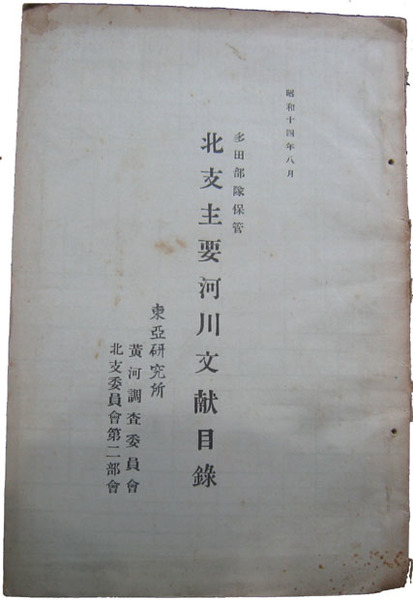 昭和十四年八月
多田部隊保管
北支主要河川文献目錄
東亞研究所
黃河調査委員會
北支委員會第二部會